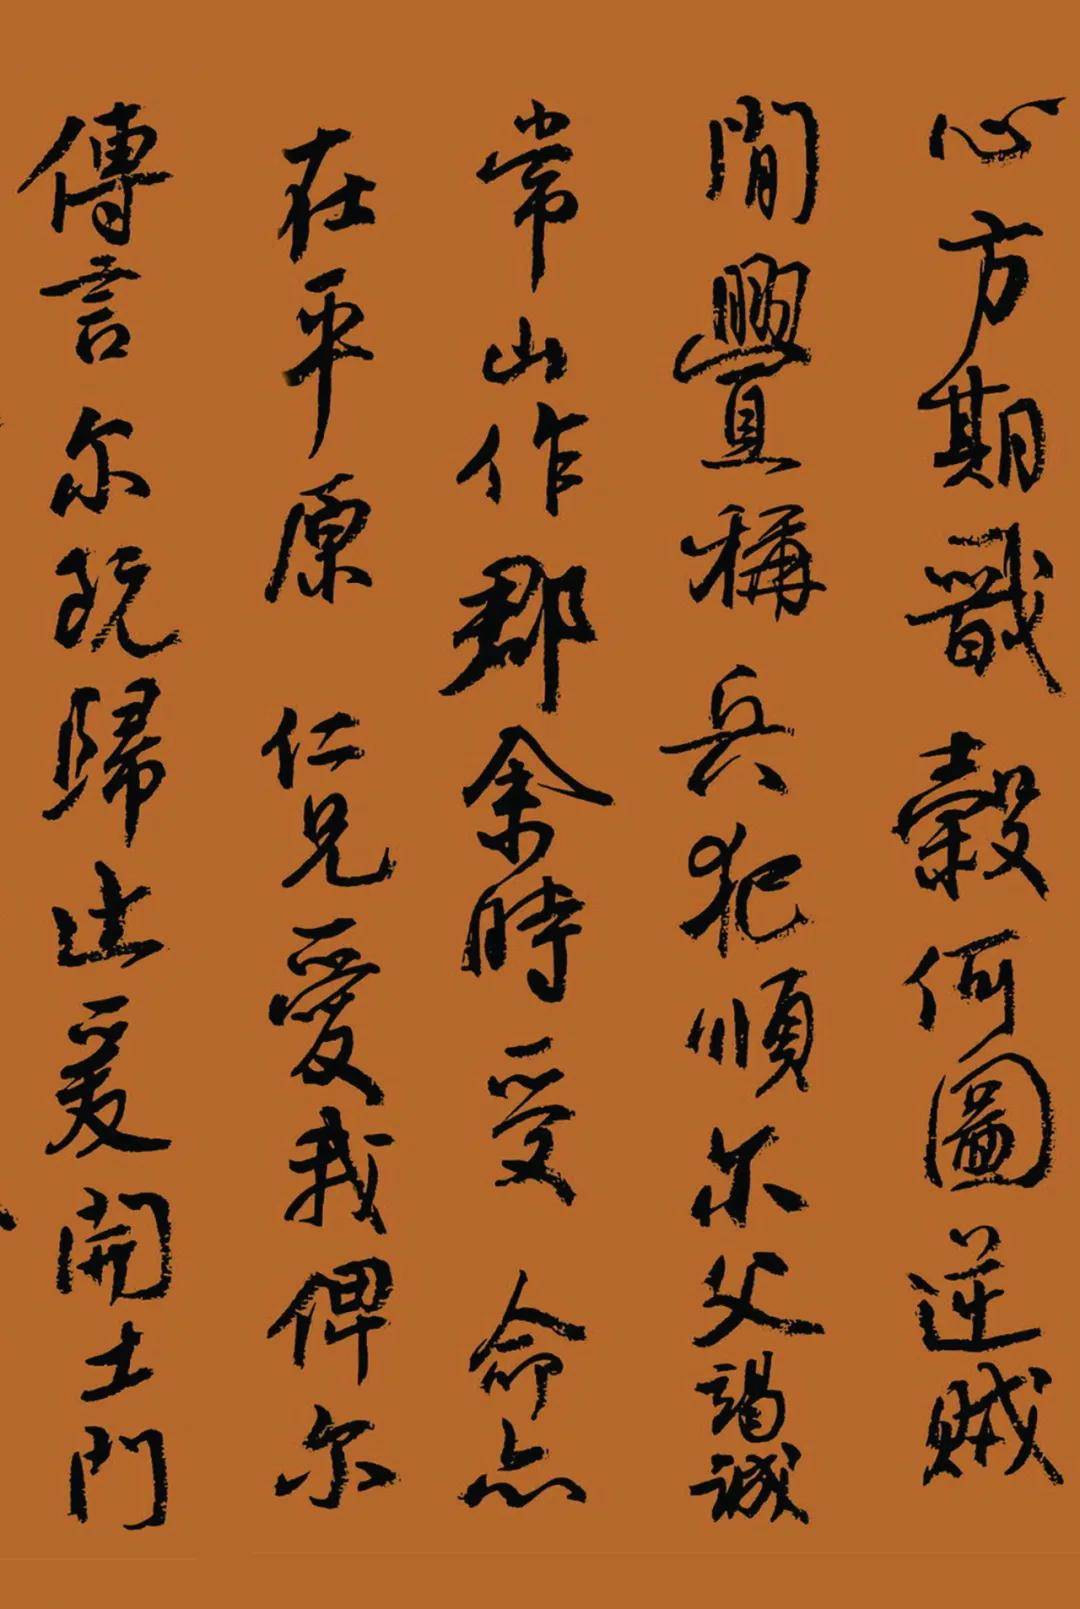 心方期戩穀何圖逆賊
閒舋稱兵犯順尔父竭誠
常山作郡余時受命亦
在平原仁兄愛我俾尔
傳言尔既歸止爰開土門